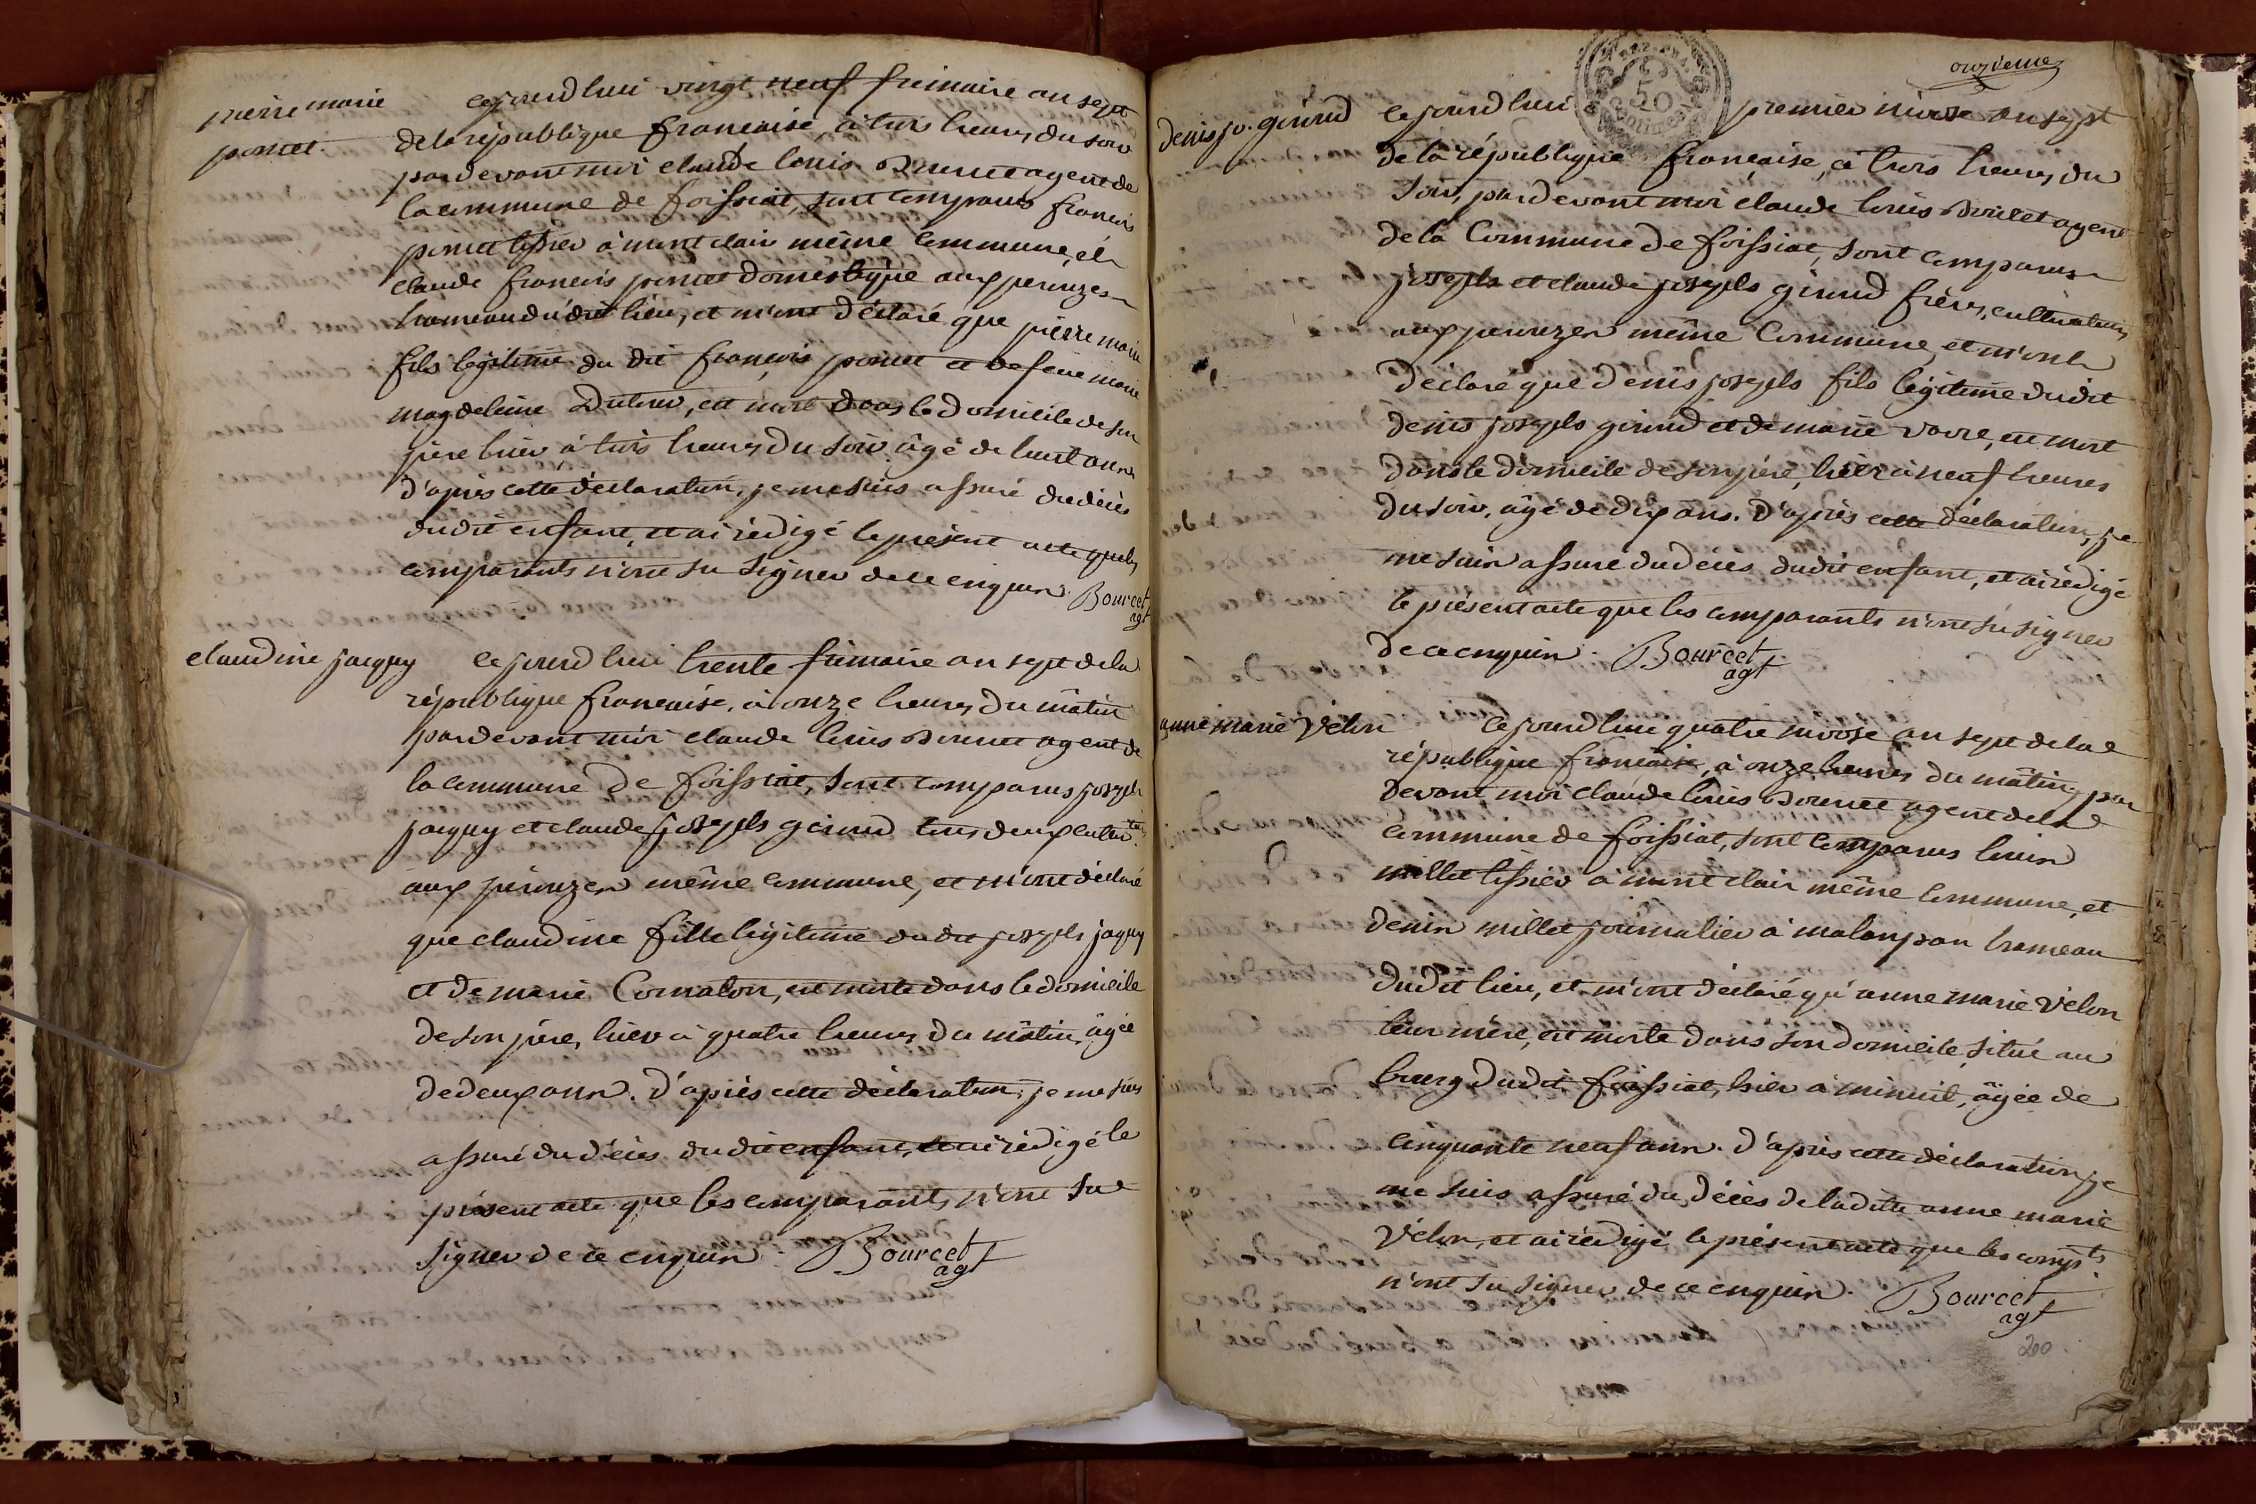 pierre marie
poncet
cejourdhui vingt neuf frimaire an sept
de la république francaise, à trois heures du soir
pardevant moi claude louis Bourcet agent de
la commune de foissiat, sont comparus francois
poncet tissier à mont clair même commune, et
claude francois poncet domestique aux perouzes
hameau du dit lieu, et m'ont déclaré que pierre marie
fils légitime du dit françois poncet et defeue marie
magdeleine Dutour, est mort dans le domicile de son
père hier à trois heures du soir âgé de huit ans
d'après cette déclaration, je me suis assuré du décès
dudit enfant, et ai rédigé le présent acte que les
comparants n'ont su signer de ce enquis. Bourcet
agt
claudine jacquy
cejourdhui trente frimaire an sept de la
république francaise, à onze heures du mâtin
pardevant moi claude louis Bourcet agent de
la commune de foissiat, sont comparus joseph
jacquy et claude joseph giroud tous deux cultivteurs
aux pérouzes même commune, et m'ont déclaré
que claudine fille légitime du dit joseph jaquy
et de marie Cornaton, est morte dans le domicile
de son père, hier à quatre heures du mâtin, âgée
de deux ans. d'après cette déclaration, je me suis
assuré du décès du dit enfant, et ai rédigé le
présent acte que les comparants n'ont su
signer de ce enquis. Bourcet
agt
onzieme
50
centimes
denis jo. giroud
cejourdhui premier nivose an sept
de la république française, à trois heures du
soir, pardevant moi claude louis Bourcet agent
de la Commune de foissiat, sont comparus
joseph et claude joseph giroud frères, cultivateurs
aux perouzes même Commune, et m'ont
déclaré que denis joseph fils légitime dudit
denis joseph giroud et de marie vovre, est mort
dans le domicile de son père, hier à neuf heures
du soir, âgé de dix ans. D'après cette déclaration, je
me suis assuré du décès dudit enfant, et ai rédigé
le présent acte que les comparants n'ont su signer
de ce enquis. Bourcet
agt
anne marie Vélon
cejourdhui quatre nivose an sept de la
république francaise, à onze heures du mâtin, par
devant moi claude louis Bourcet agent de la
commune de foissiat, sont comparus louis
millet tissier à mont clair même commune, et
denis millet journalier à malonpan hameau
dudit lieu, et m'ont déclaré qu'anne marie Vélon
leur mère, est morte dans son domicile, situé au
bourg dudit foissiat, hier à minuit, âgée de
cinquante neuf ans. d'après cette déclaration, je
me suis assuré du décès de ladite anne marie
Vélon, et ai rédigé le présent acte que les compts
n'ont su signer de ce enquis. Bourcet
agt
200